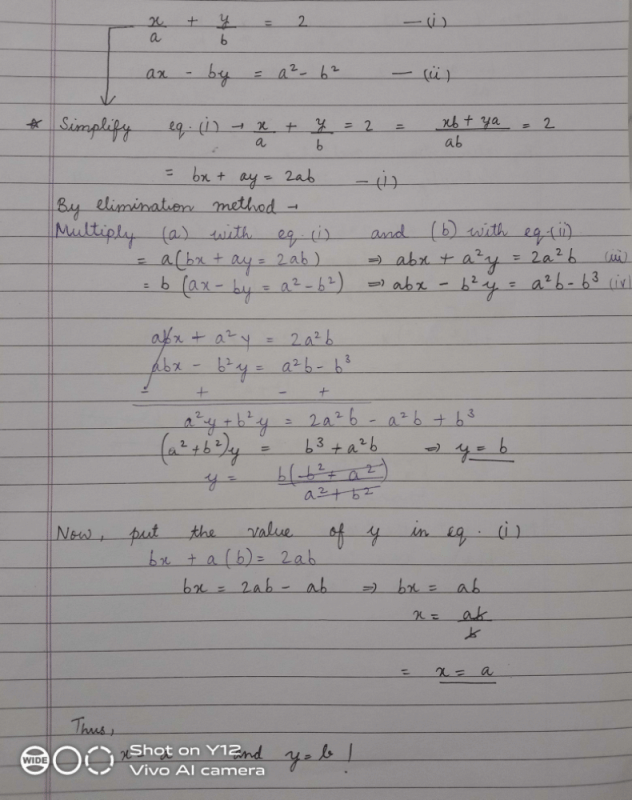 x/a + y/b = 2 — (i)
ax - by = a² - b² — (ii)
* Simplify eq. (i) → x/a + y/b = 2 = xb + ya/ab = 2
= bx + ay = 2ab — (i)
By elimination method →
Multiply (a) with eq. (i) and (b) with eq. (ii)
= a(bx + ay = 2ab) ⇒ abx + a²y = 2a²b (iii)
= b (ax - by = a² - b²) ⇒ abx - b²y = a²b - b³ (iv)
abx + a²y = 2a²b
abx - b²y = a²b - b³
- + - +
a²y + b²y = 2a²b - a²b + b³
(a² + b²)y = b³ + a²b ⇒ y = b
y = b(b² + a²)/a² + b²
Now, put the value of y in eq. (i)
bx + a(b) = 2ab
bx = 2ab - ab ⇒ bx = ab
x = ab/b
= x = a
Thus,
x = a and y = b !
WIDE Shot on Y12
Vivo AI camera